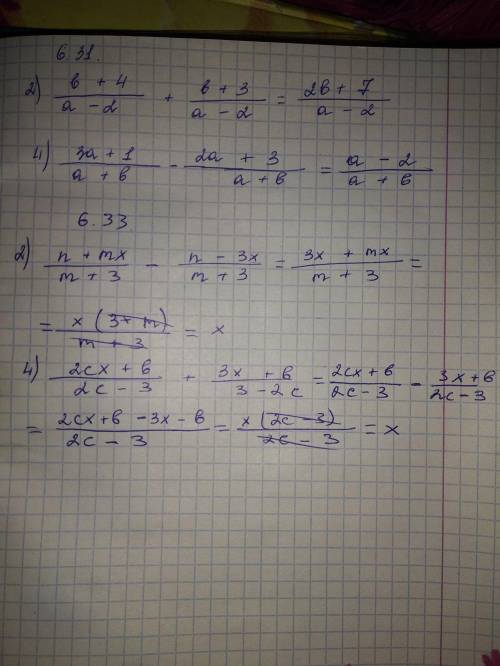 6.31.
2) (в + 4)/(a - 2) + (в + 3)/(a - 2) = (2в + 7)/(a - 2)
4) (3a + 1)/(a + в) - (2a + 3)/(a + в) = (a - 2)/(a + в)
6.33
2) (n + mx)/(m + 3) - (n - 3x)/(m + 3) = (3x + mx)/(m + 3) =
= x(3 + m)/(m + 3) = x
4) (2cx + в)/(2c - 3) + (3x + в)/(3 - 2c) = (2cx + в)/(2c - 3) - (3x + в)/(2c - 3)
= (2cx + в - 3x - в)/(2c - 3) = x(2c - 3)/(2c - 3) = x